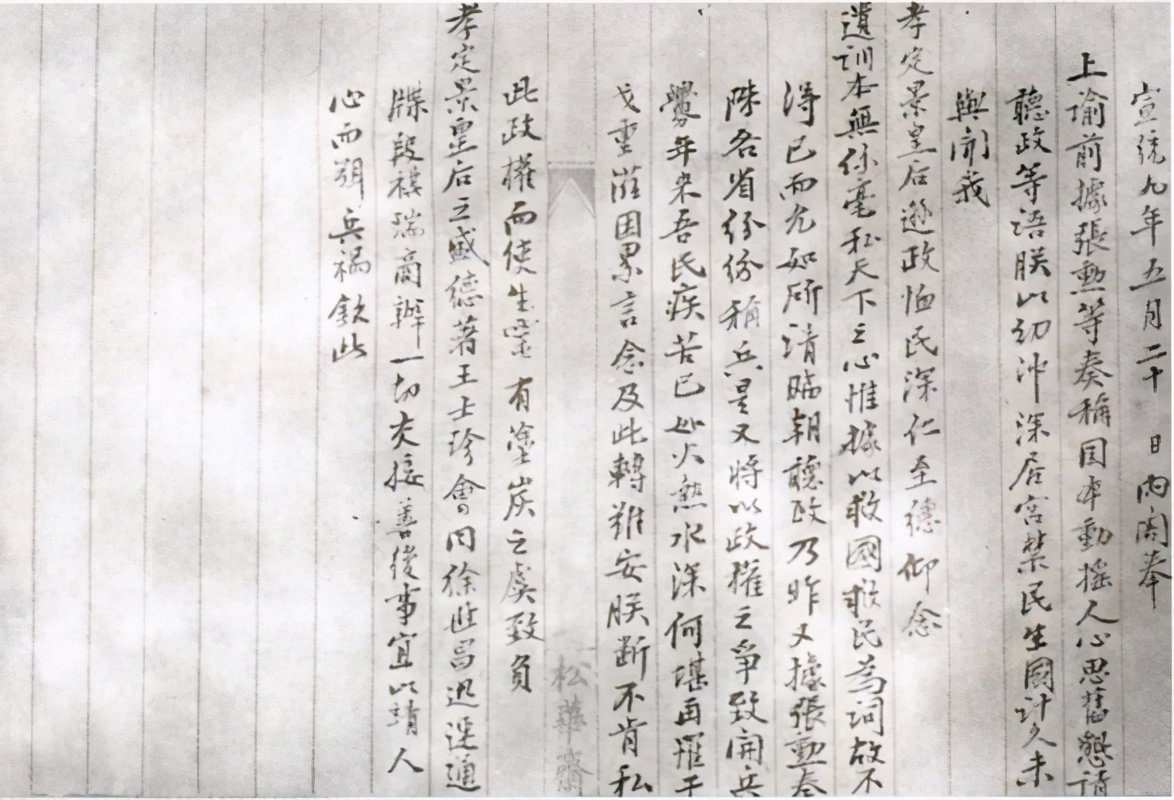 宣統九年五月二十 日內閣奉
上諭前據張勳等奏稱国本動搖人心思舊懇請
聽政等語朕以幼沖深居宮禁民生國計久未
與聞我
孝定景皇后遜政恤民深仁至德仰念
遺訓本無絲毫私天下之心惟據以救國救民為詞故不
得已而允如所請臨朝聽政乃昨又據張勳奏
陳各省份份稱兵是又將以政權之爭致開兵
釁年來吾民疾苦已如火熱水深何堪再罹干
戈重茲困累言念及此轉難安朕斷不肯私
松華齋
此政權而使生靈有塗炭之虞致負
孝定景皇后之盛德著王士珍會同徐世昌迅速通
牒段祺瑞商辦一切交接善後事宜以靖人
心而弭兵禍欽此